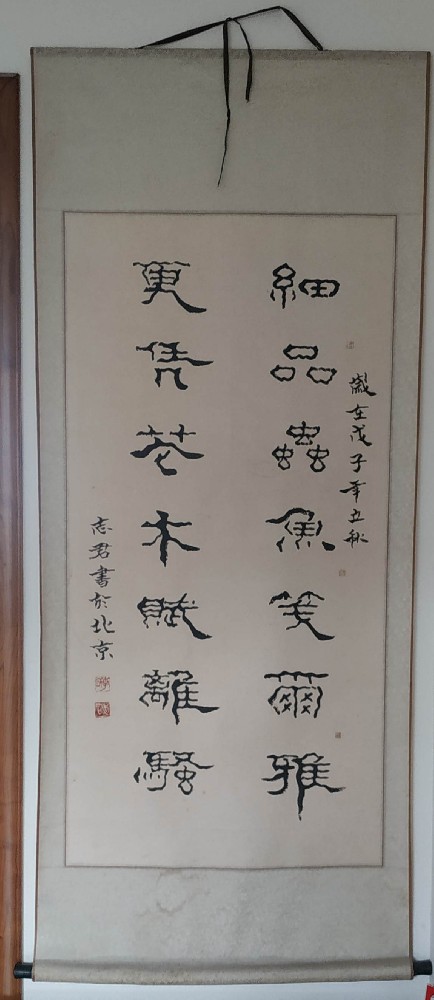 歲在戊子年立秋
細品蟲魚箋爾雅
更凭芲木賦離騷
志君書於北京